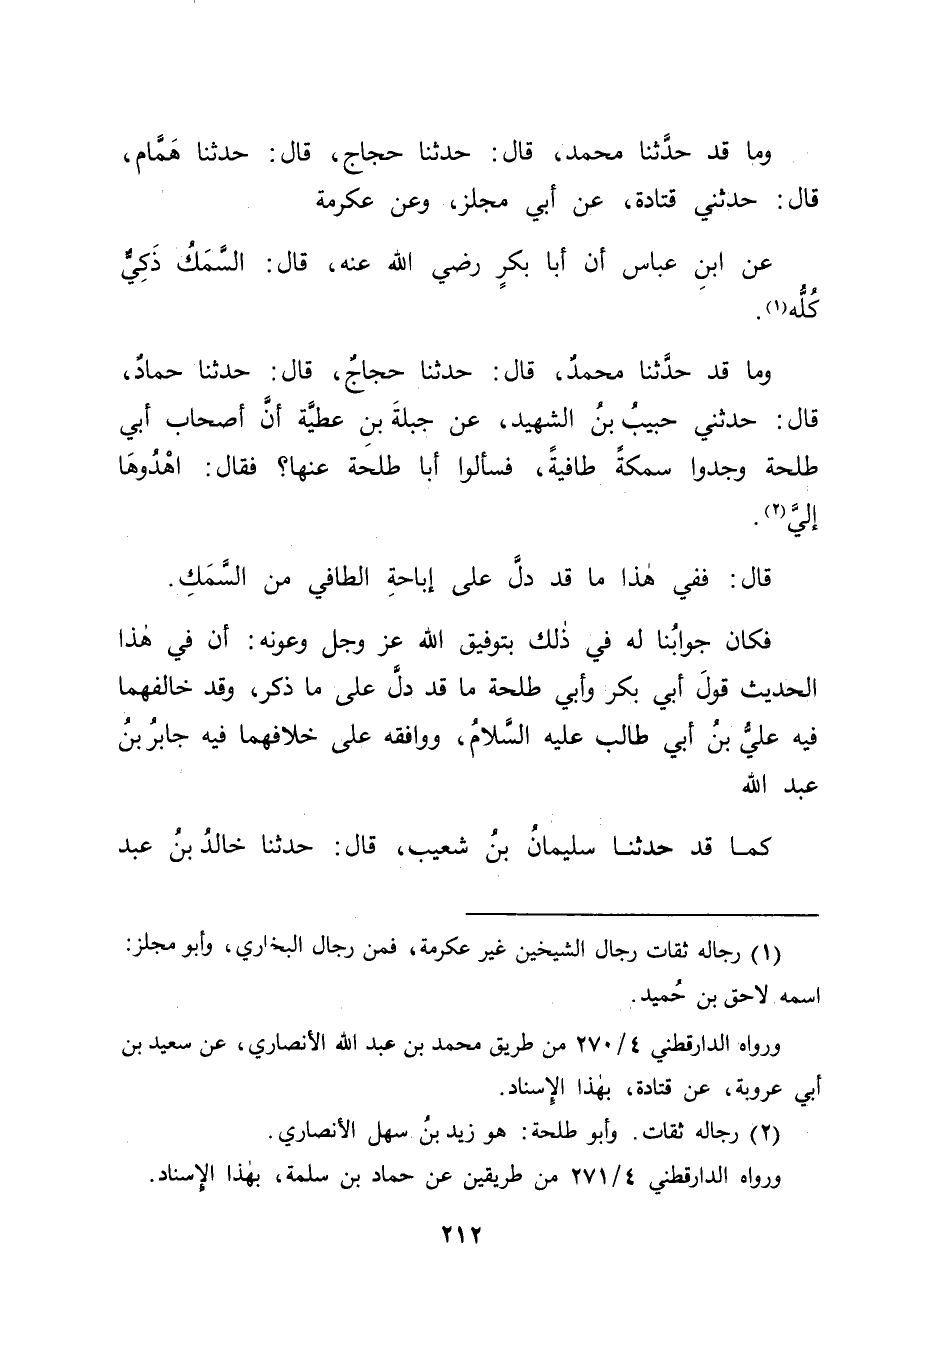 وما قد حدَّثنا محمد، قال: حدثنا حجاج، قال: حدثنا هَمَّام،
قال: حدثني قتادة، عن أبي مجلز، وعن عكرمة
عن ابنِ عباس أن أبا بكرٍ رضي الله عنه، قال: السَّمَكُ ذَكِيٌّ
كُلُّه(١).
وما قد حدَّثنا محمدٌ، قال: حدثنا حجاجٌ، قال: حدثنا حمادٌ،
قال: حدثني حبيبُ بنُ الشهيد، عن جبلةَ بنِ عطيَّة أنَّ أصحاب أبي
طلحة وجدوا سمكةً طافيةً، فسألوا أبا طلحة عنها؟ فقال: اهْدُوهَا
إليَّ(٢).
قال: ففي هٰذا ما قد دلَّ على إباحةِ الطافي من السَّمَكِ.
فكان جوابُنا له في ذٰلك بتوفيق الله عز وجل وعونه: أن في هٰذا
الحديث قولَ أبي بكر وأبي طلحة ما قد دلَّ على ما ذكر، وقد خالفهما
فيه عليُّ بنُ أبي طالب عليه السَّلامُ، ووافقه على خلافهما فيه جابرُ بنُ
عبد الله
كما قد حدثنا سليمانُ بنُ شعيب، قال: حدثنا خالدُ بنُ عبد
(١) رجاله ثقات رجال الشيخين غير عكرمة، فمن رجال البخاري، وأبو مجلز:
اسمه لاحق بن حُميد.
ورواه الدارقطني ٢٧٠/٤ من طريق محمد بن عبد الله الأنصاري، عن سعيد بن
أبي عروبة، عن قتادة، بهٰذا الإسناد.
(٢) رجاله ثقات. وأبو طلحة: هو زيد بنُ سهل الأنصاري.
ورواه الدارقطني ٢٧١/٤ من طريقين عن حماد بن سلمة، بهٰذا الإسناد.
٢١٢